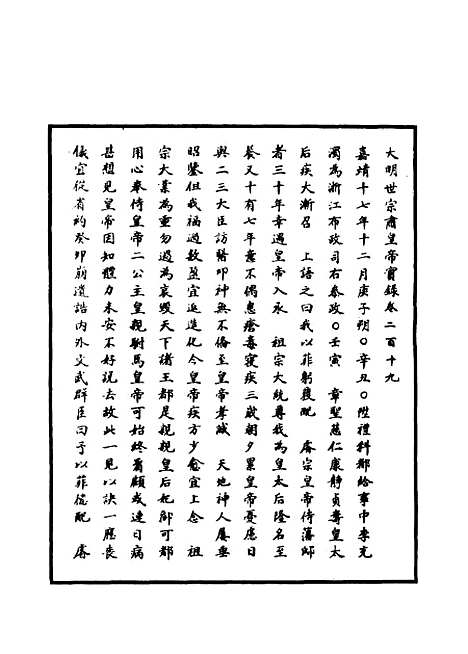 大明世宗肅皇帝實錄卷二百十九
嘉靖十七年十二月庚子朔○辛丑○陞禮科都給事中李充
濁為浙江布政司右參政○壬寅　章聖慈仁康靜貞壽皇太
后疾大漸召　上語之曰我以菲躬獲配　睿宗皇帝侍藩師
者三十年幸遇皇帝入承　祖宗大統尊我為皇太后隆名至
養又十有七年蹇不偶患瘡毒寢疾三歲朝夕累皇帝憂應日
與二三大臣訪醫叩神無不備至皇帝孝誠　天地神人屢垂
昭鑒但我福過數盈宜返造化今皇帝疾方少愈宜上念　祖
宗大業為重勿過為哀毀天下諸王都是親親皇后妃御可都
用心奉侍皇帝二公主皇親駙馬皇帝可始終看顧或連日病
甚想見皇帝因知體力未安不好說去故此一見以訣一應喪
儀宜從省約癸卯崩遺誥內外文武群臣曰予以菲德配　睿